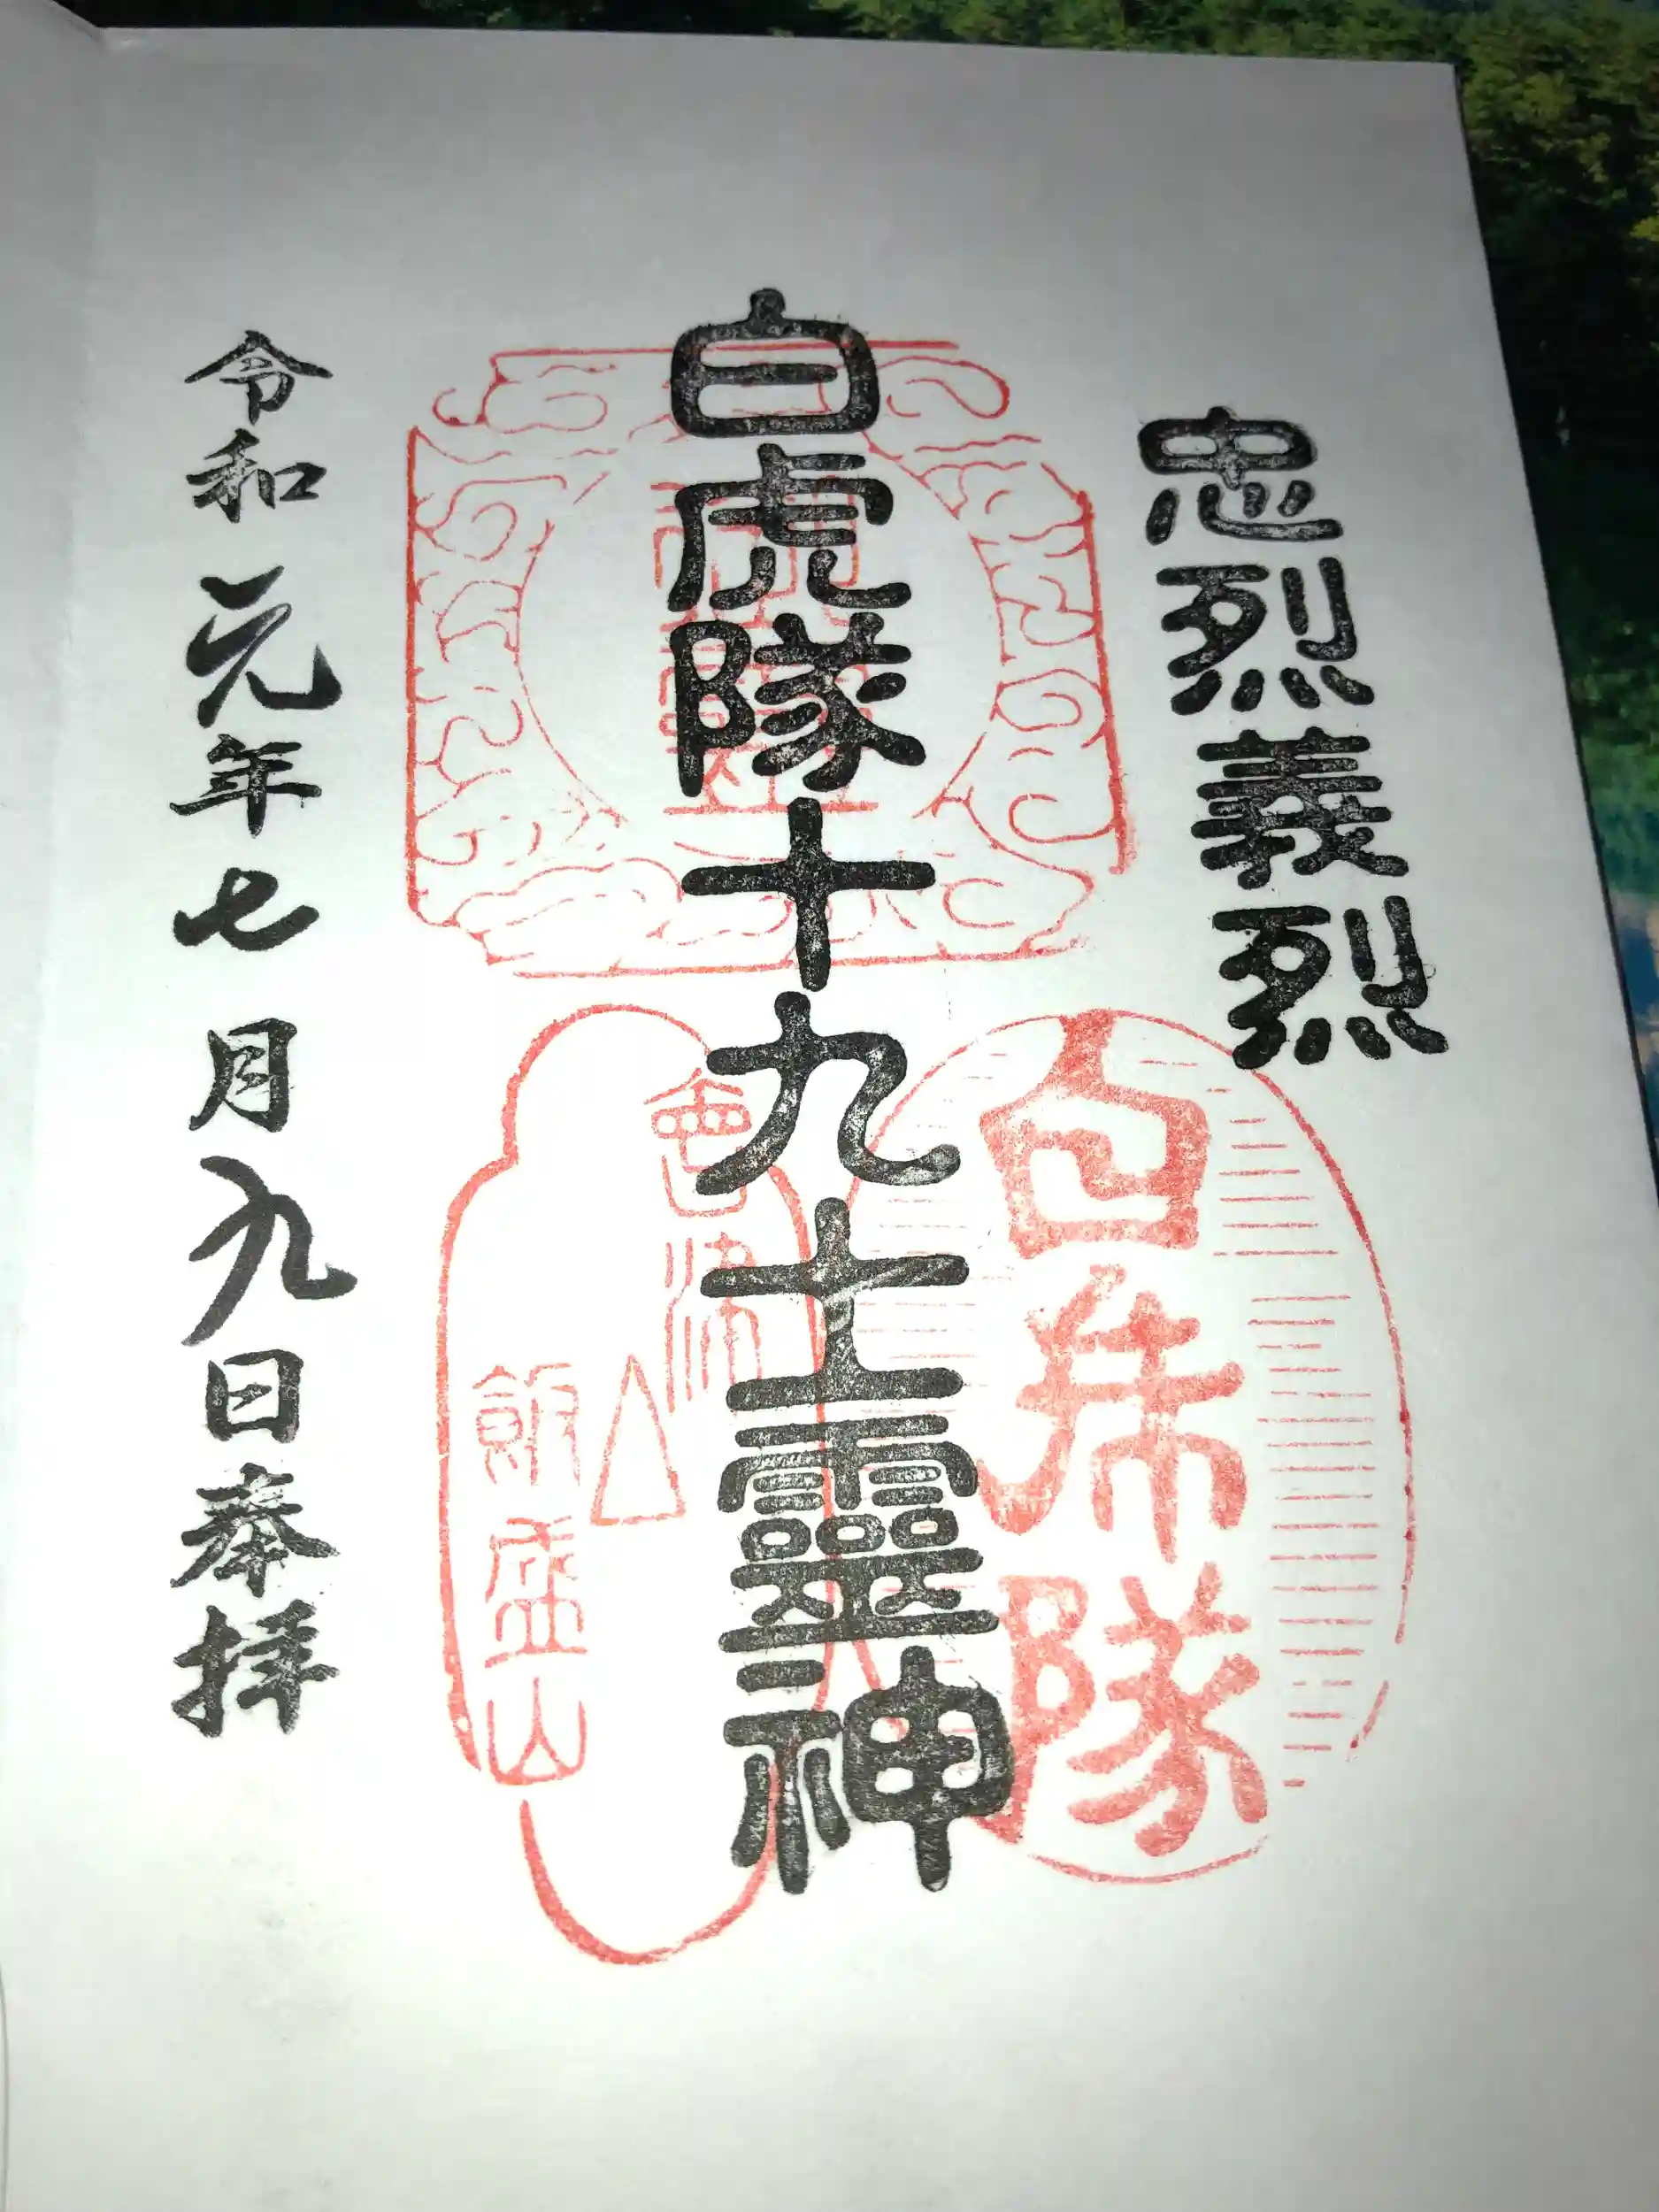 忠烈義烈
白虎隊十九士靈神
白虎隊
會津
飯盛山
令和元年七月九日奉拝